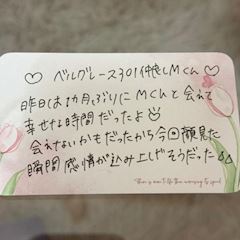 ♡ ベルグレース301仲良しMくん ♡
昨日は1カ月ぶりにMくんと会えて
幸せな時間だったよ
会えないかもだったから今回顔見た
瞬間感情が込み上げそうだった